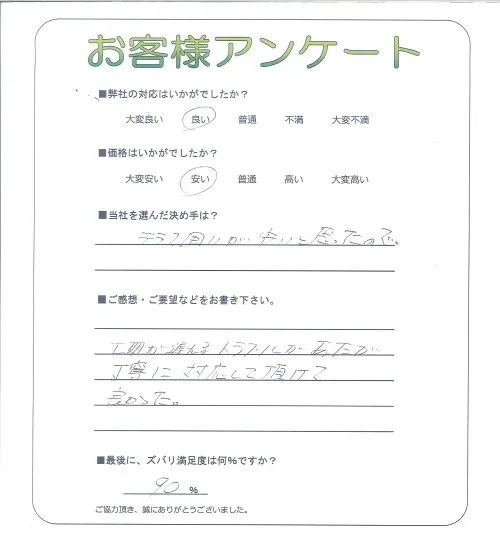 お客様アンケート
■弊社の対応はいかがでしたか?
大変良い 良い 普通 不満 大変不満
■価格はいかがでしたか?
大変安い 安い 普通 高い 大変高い
■当社を選んだ決め手は?
テラス囲いが安いと思ったので。
■ご感想・ご要望などをお書き下さい。
工期が遅れるトラブルがあったが
丁寧に対応して頂けて
良かった。
■最後に、ズバリ満足度は何%ですか?
90 %
ご協力頂き、誠にありがとうございました。